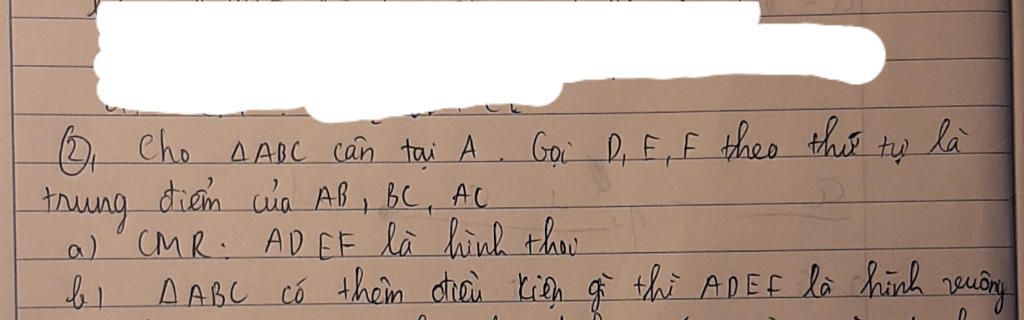 ②, Cho ΔABC cân tại A. Gọi D, E, F theo thứ tự là
trung điểm của AB, BC, AC
a) CMR: ADEF là hình thoi
b) ΔABC có thêm điều kiện gì thì ADEF là hình vuông